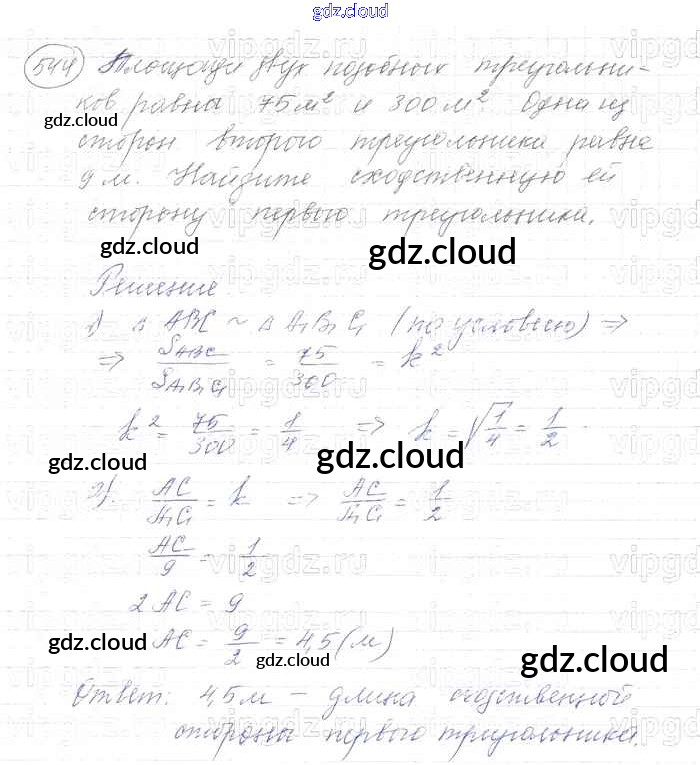 gdz.cloud
544 Площади двух подобных треугольни-
ков равны 75 м² и 300 м². Одна из
сторон второго треугольника равна
9 м. Найдите сходственную ей
сторону первого треугольника.
gdz.cloud gdz.cloud
Решение
1) Δ ABC ~ Δ A₁B₁C₁ (по условию) ⇒
⇒ S_ABC / S_A₁B₁C₁ = 75/300 = k²
k² = 75/300 = 1/4 ⇒ k = √1/4 = 1/2
gdz.cloud gdz.cloud
2). AC/A₁C₁ = k ⇒ AC/A₁C₁ = 1/2
AC/9 = 1/2
2 AC = 9
AC = 9/2 = 4,5 (м)
gdz.cloud gdz.cloud gdz.cloud
Ответ: 4,5 м – длина сходственной
стороны первого треугольника.